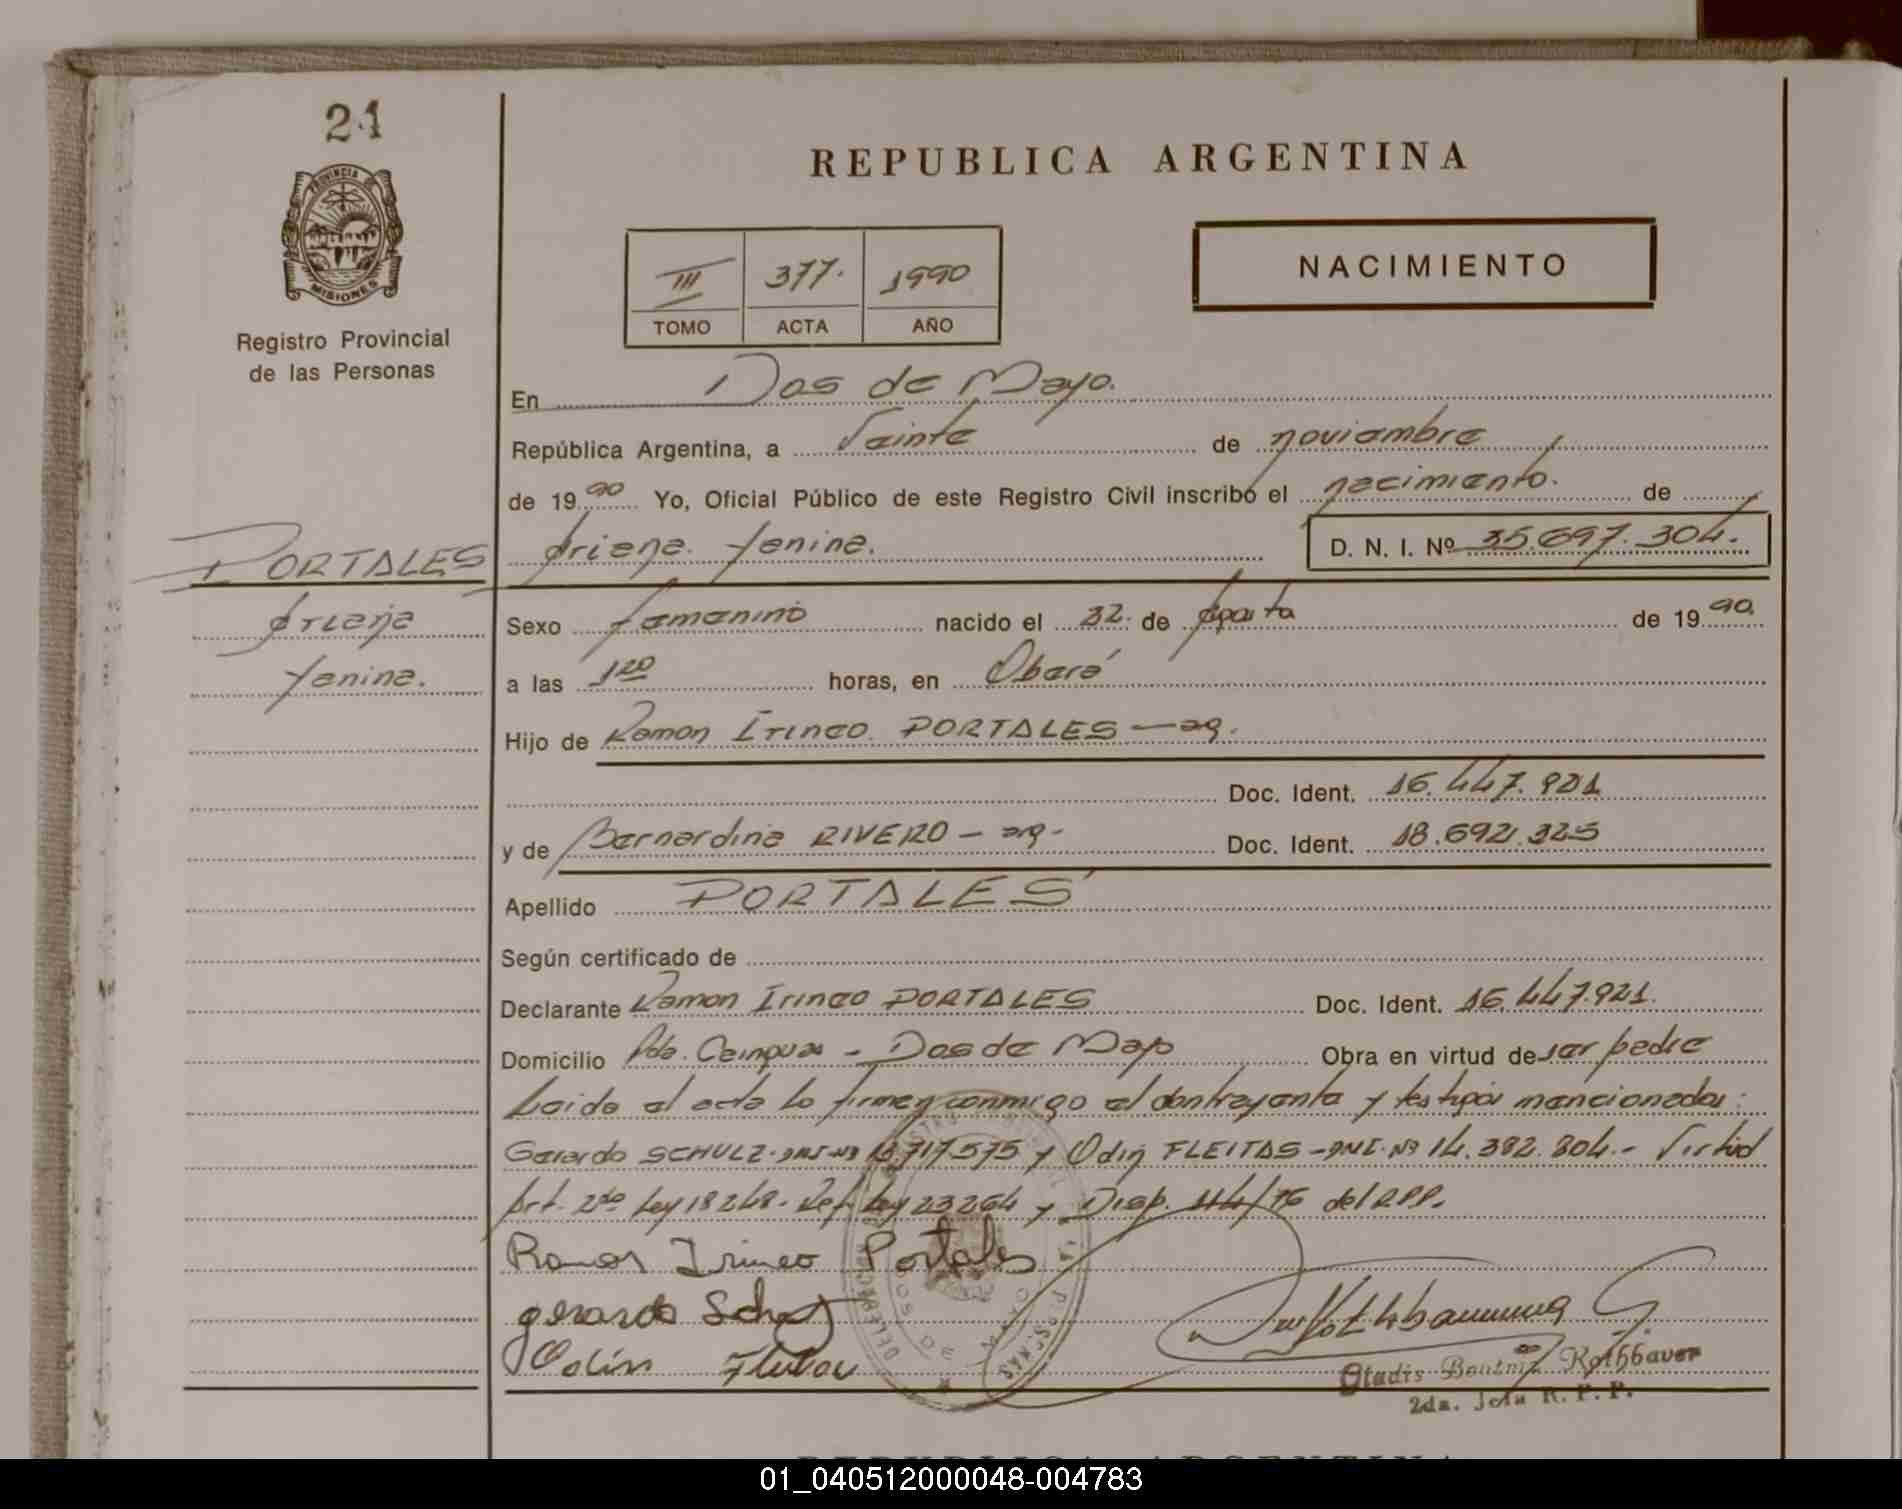 21
PROVINCIA DE
MISIONES
Registro Provincial
de las Personas
REPUBLICA ARGENTINA
III 377. 1990
TOMO ACTA AÑO
NACIMIENTO
En Dos de Mayo.
República Argentina, a Veinte de noviembre
de 1990 Yo, Oficial Público de este Registro Civil inscribo el nacimiento. de
Ariana Yanina. D. N. I. Nº 35.697.304.
PORTALES
Ariana
Yanina.
Sexo Femenino nacido el de Agosto de 1990.
a las 1 20 horas, en Oberá
Hijo de Ramon Irineo PORTALES — arg.
Doc. Ident. 16.447.921
y de Bernardina RIVERO - arg- Doc. Ident. 18.692.325
Apellido PORTALES
Según certificado de
Declarante Ramon Irineo PORTALES Doc. Ident. 16.447.921.
Domicilio Pdo. Cainguas - Dos de Mayo Obra en virtud de ser padre
Leida el acta la firman conmigo el y testigos mencionados:
Gerardo SCHULZ-DNI-Nº 717575 y Odin FLEITAS-DNI-Nº 14.382.804.- Virtud
Art. 2do Ley 18248- Ref. Ley 23264 y Disp. 44/76 del RPP.
Ramon Irineo Portales
gerardo
Odin
DELEGACION
PERSONAS
Rothbauer
2da. Jefa R. P. P.
REPUBLICA ARGENTINA
01_040512000048-004783